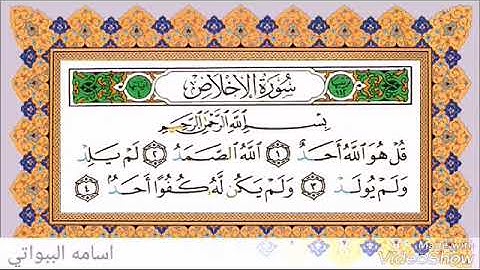 سُورَةُ الإِخْلَاصِ
بِسْمِ اللَّهِ الرَّحْمَٰنِ الرَّحِيمِ
قُلْ هُوَ اللَّهُ أَحَدٌ ١ اللَّهُ الصَّمَدُ ٢ لَمْ يَلِدْ
وَلَمْ يُولَدْ ٣ وَلَمْ يَكُن لَّهُ كُفُوًا أَحَدٌ ٤
اسامه الببواتي
Made with
VideoShow